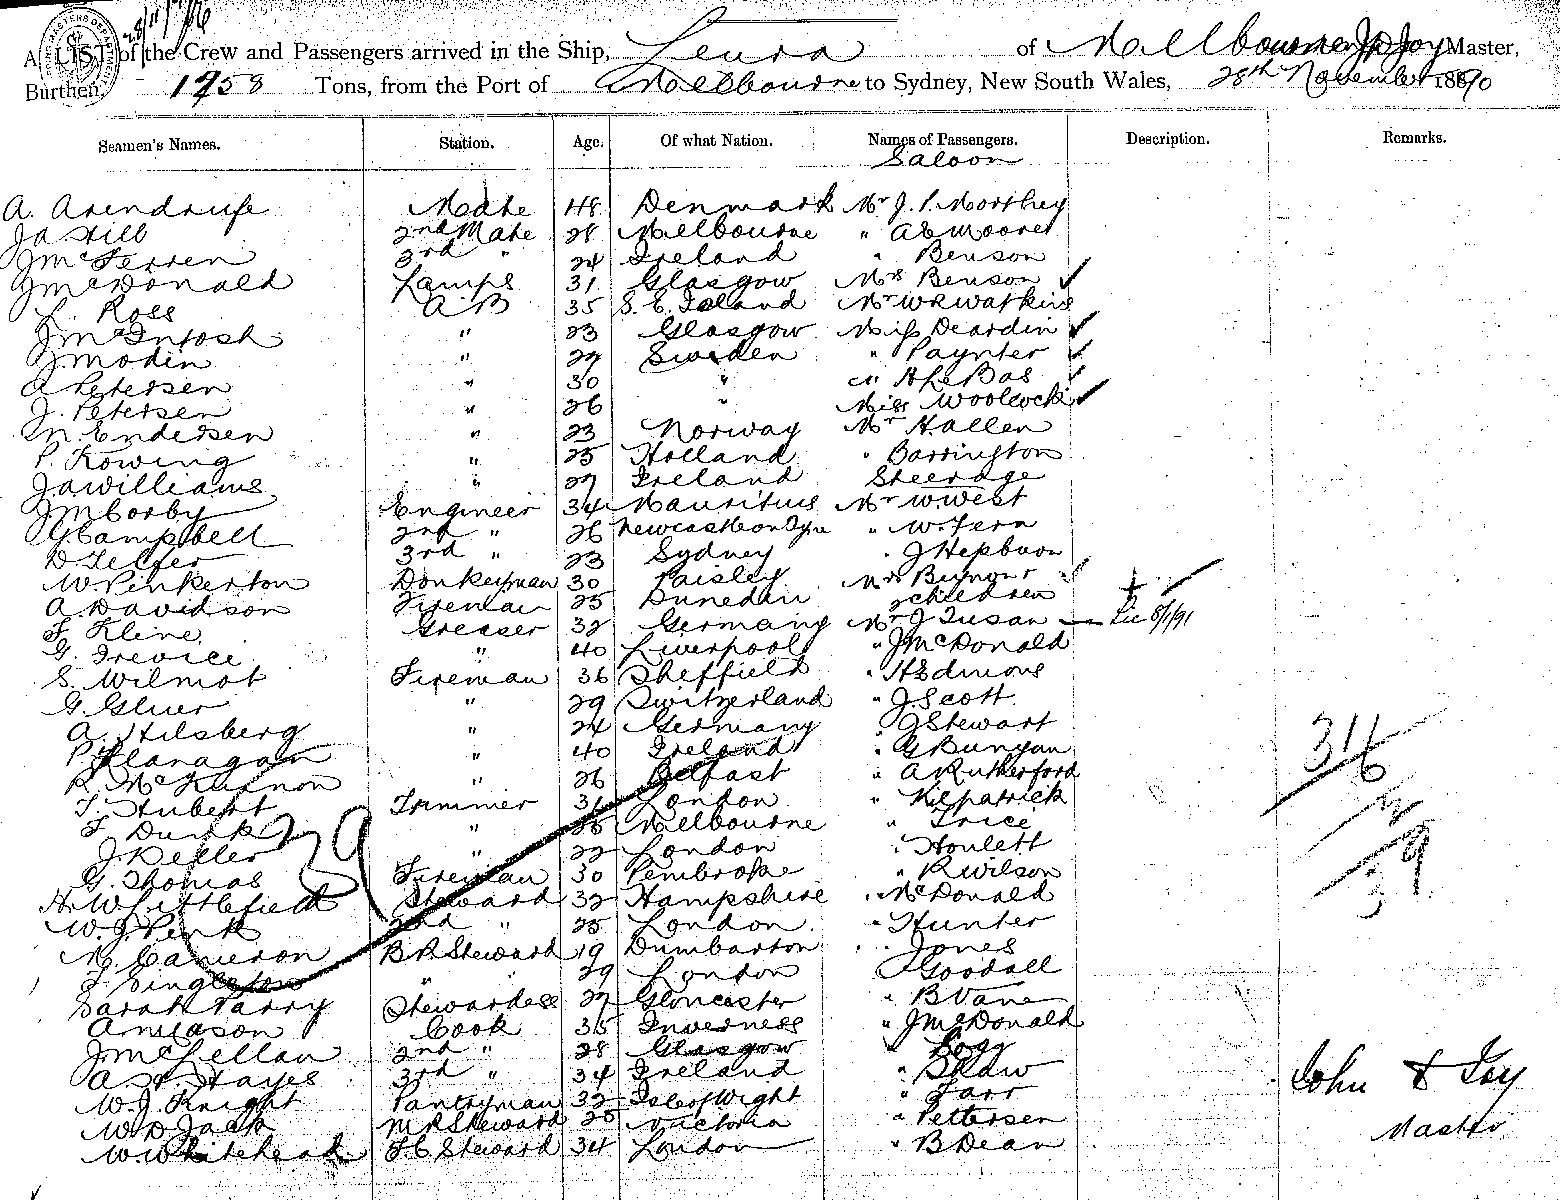 28/11/90
A LIST of the Crew and Passengers arrived in the Ship, Leura of Melbourne Master,
Burthen, 1958 Tons, from the Port of Melbourne to Sydney, New South Wales, 28th November 1890
Seamen's Names. Station. Age. Of what Nation. Names of Passengers. Description. Remarks.
Saloon
A. Arendrupe Mate 48 Denmark Mr J. P. Morthey
Ja Hill 2nd Mate 28 Melbourne " A E Moore
J McFerren 3rd " 24 Ireland " Benson
J McDonald Lamps 31 Glasgow Mrs Benson
L. Ross A B 35 S. E. Island Mr W R Watkins
J McIntosh " 23 Glasgow Miss Deardin
J Modin " 27 Sweden " Paynter
A Petersen " 30 " " A Le Bas
J. Petersen " 26 " Miss Woolcock
M. Endersen " 23 Norway Mr H. Allen
P. Kowing " 25 Holland " Barrington
J A Williams " 27 Ireland Steerage
J M Corby Engineer 34 Mauritius Mr W. West
G Campbell 2nd " 26 Newcastle on Tyne " W. Fern
D Telfer 3rd " 23 Sydney " J Hepburn
W. Pinkerton Donkeyman 30 Paisley Mrs
A Davidson Fireman 25 Dunedin 2 children
F Kline Greaser 32 Germany Mr J Susan — Lic 8/1/91
G. Trevice " 40 Liverpool " J McDonald
S. Wilmot Fireman 36 Sheffield " H Edmons
G. Gluer " 29 Switzerland " J. Scott
A. Hilsberg " 24 Germany " J Stewart
P Flanagan " 40 Ireland " G Bunyan
R. McKinnon " 26 Belfast " A Rutherford
T. Hubert Trimmer 31 London " Kilpatrick
F. Dunk " 25 Melbourne " Price
J. Deller " 22 London " Howlett
G. Thomas Fireman 30 Pembroke " R Wilson
H. W Littlefield Steward 32 Hampshire " McDonald
W. J. Penk 2nd " 25 London " Hunter
M. Cameron B. R. Steward 19 Dumbarton " Jones
F. Singleton " " 29 London " Goodall
Sarah Parry Stewardess 27 Gloucester " B Vane
A Mason Cook 35 Inverness " J McDonald
J McLellan 2nd " 28 Glasgow "
A. H. Hayes 3rd " 34 Ireland " B Law
W. J. Knight Pantryman 32 Isle of Wight " Farr
W D Jack M R Steward 25 Victoria " Pettersen
W. Whitehead F. C Steward 34 London " B Dean
39
316
39
John J Joy
Master